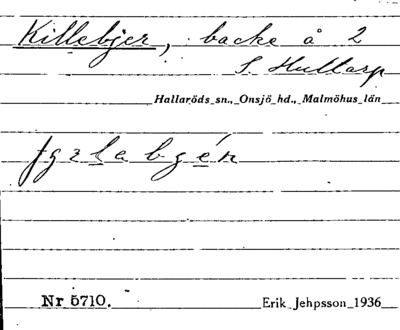 Killebjer, backe å 2
S. Hullarp
Hallaröds sn., Onsjö hd., Malmöhus län
Nr 5710.
Erik Jehpsson 1936